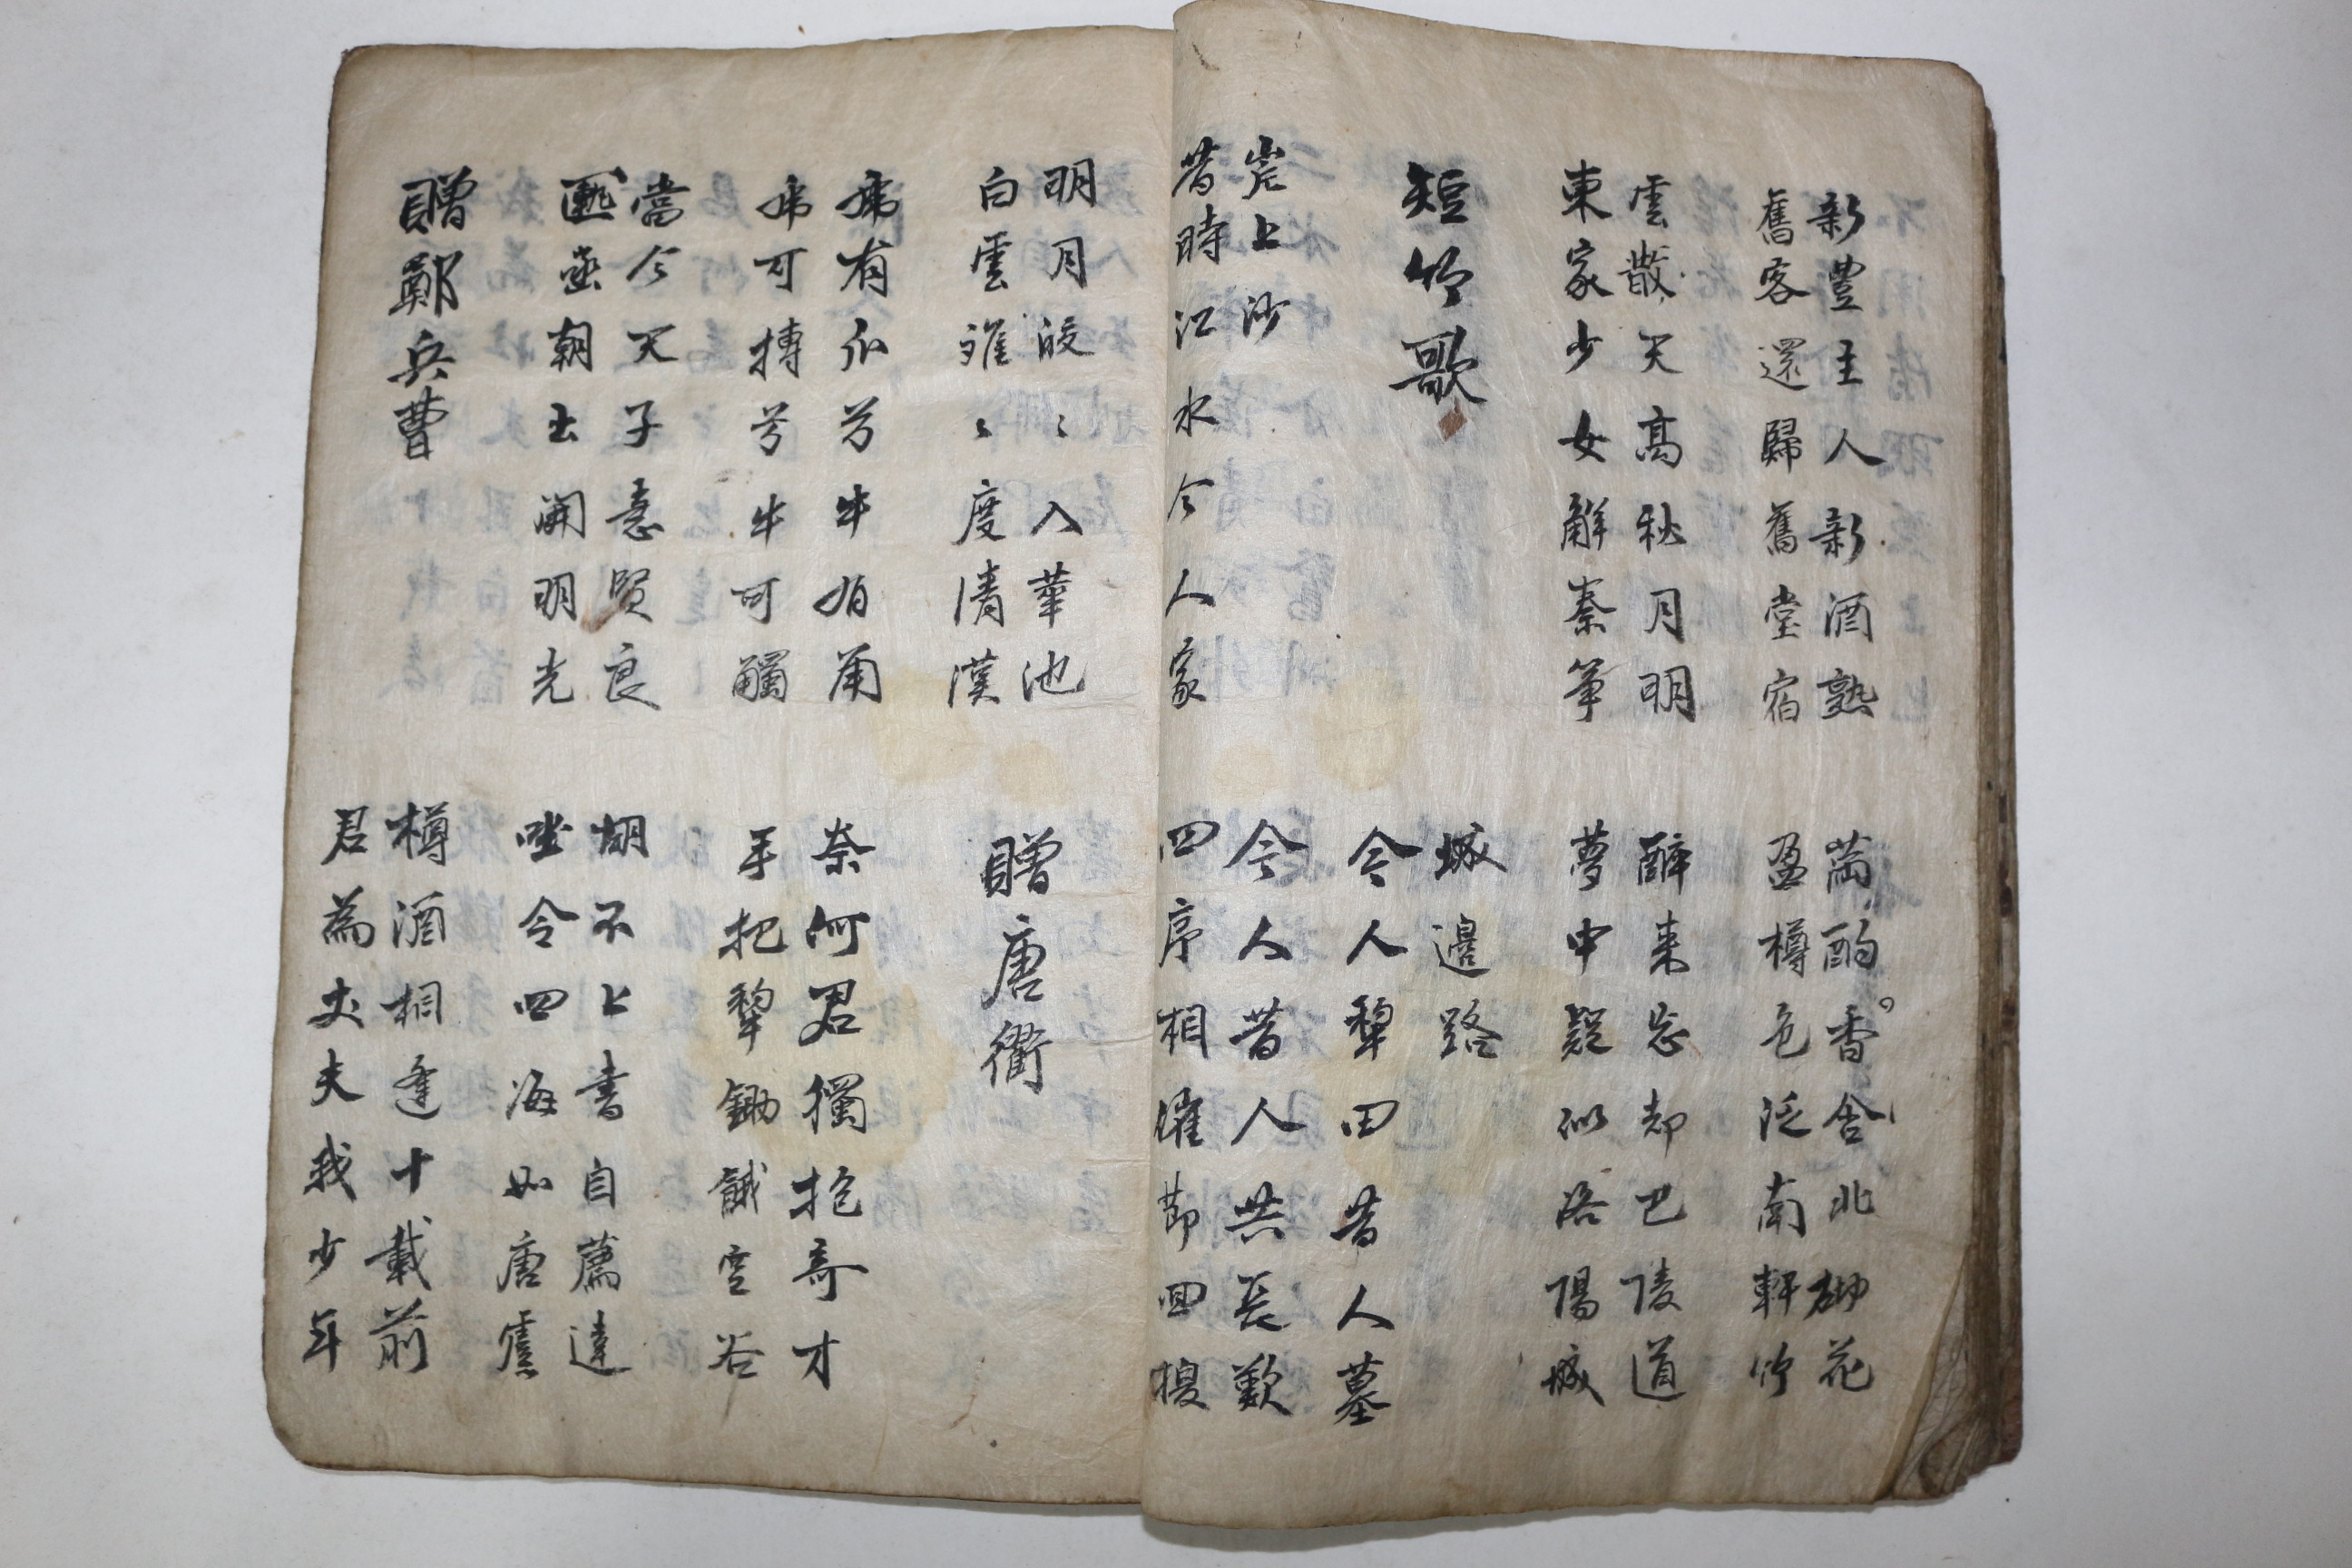 新豊主人新酒熟
舊客還歸舊堂宿
萬酌香含北砌花
盈樽色泛南軒竹
雲散天高秋月明
東家少女解秦箏
醉来忘却巴陵道
夢中疑似洛陽城
短竹歌
城邊路
今人犂田昔人墓
岸上沙
昔時江水今人家
今人昔人共長歎
四序相催節回換
明月皎〻入華池
白雲離〻度清漢
贈唐衢
虎有爪兮牛有角
虎可搏兮牛可觸
奈何君獨抱奇才
手把犂鋤餓空谷
當今天子急賢良
匭函朝出開明光
胡不上書自薦達
坐令四海如唐虞
贈鄭兵曹
樽酒相逢十載前
君為丈夫我少年